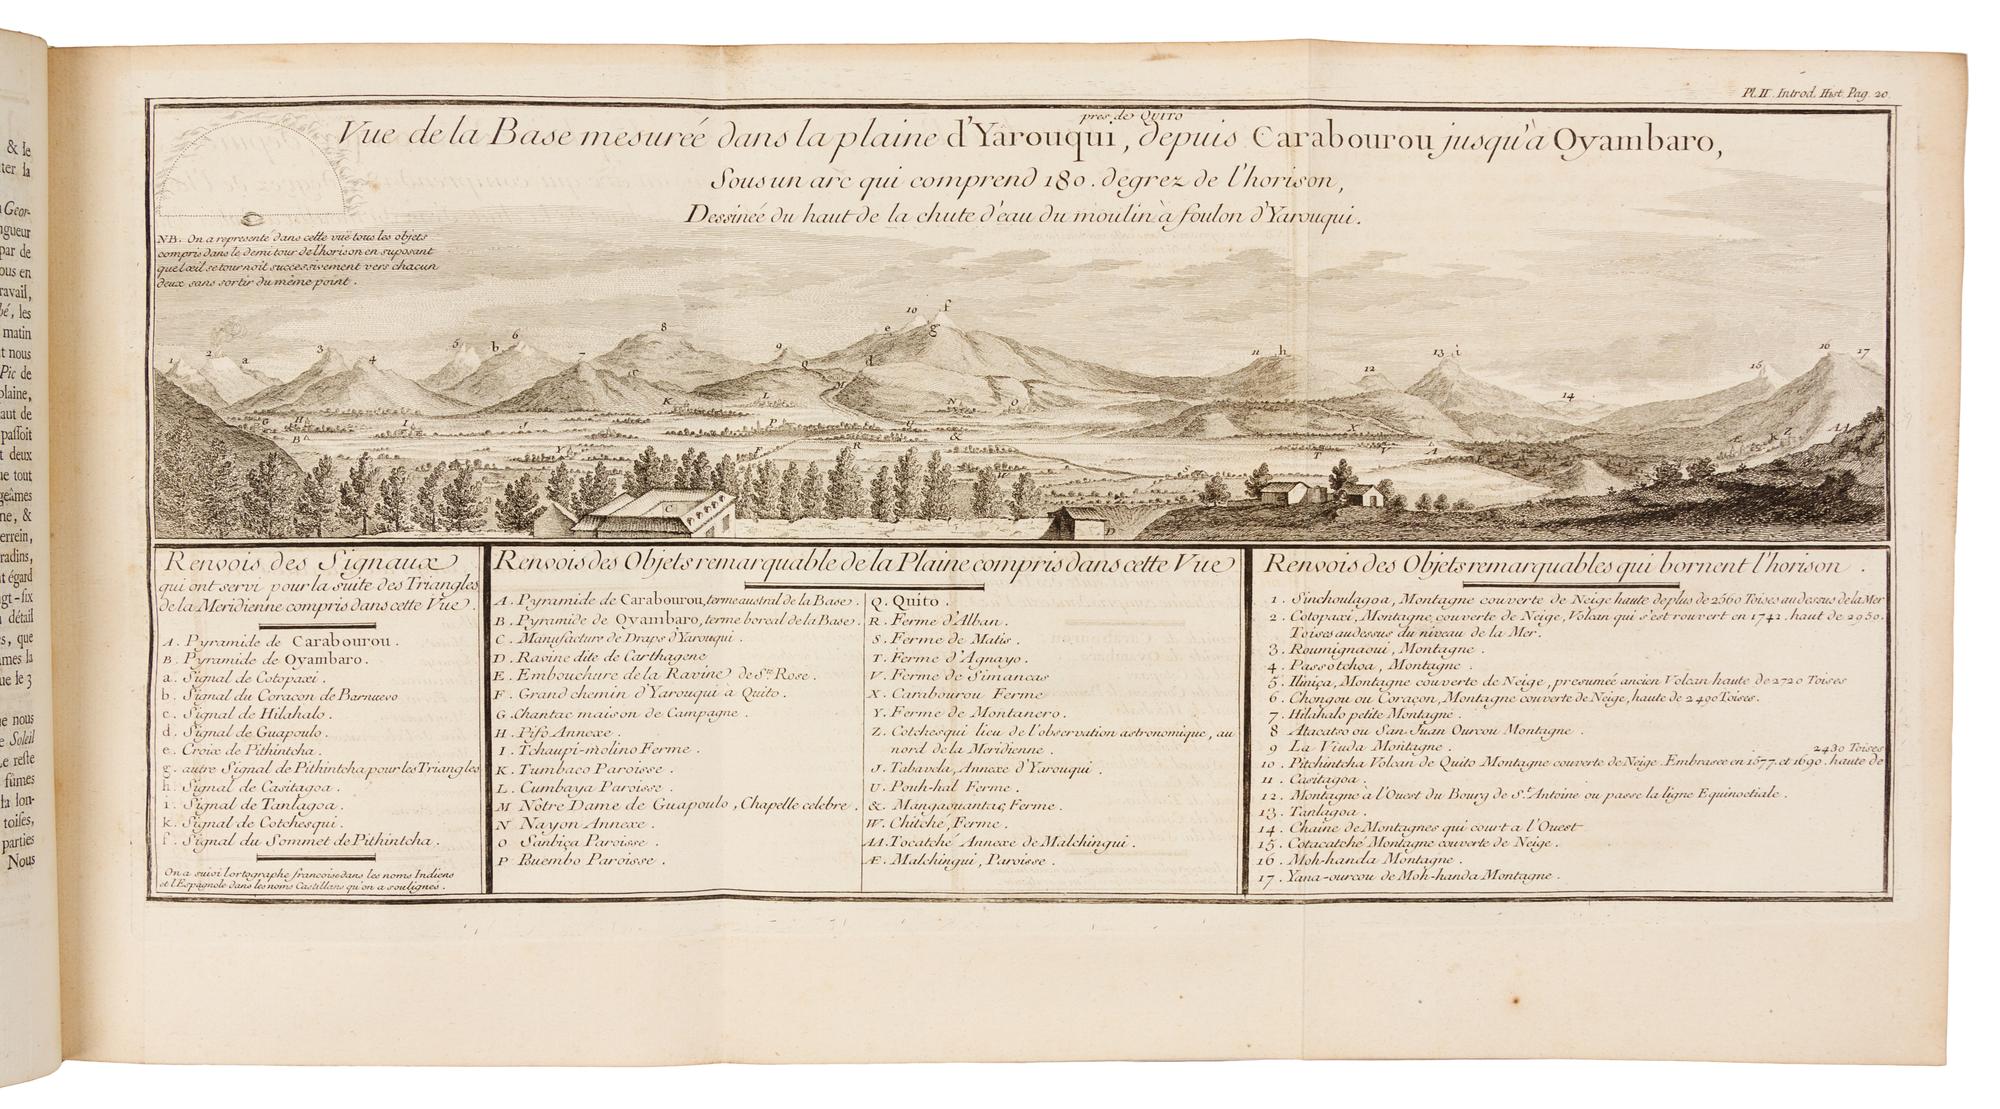 & le
ter la
Geor-
ngueur
par de
ous en
ravail,
bé, les
matin
t nous
Pic de
plaine,
aut de
passoit
t deux
ue tout
geâmes
ne, &
errein,
radins,
t égard
ngt-six
détail
s, que
âmes la
ue le 3
ue nous
Soleil
Le reste
fûmes
la lon-
toises,
parties
Nous
Pl. II. Introd. Hist. Pag. 20
près de QUITO
Vue de la Base mesurée dans la plaine d'Yarouqui, depuis Carabourou jusqu'à Oyambaro,
Sous un arc qui comprend 180. degrez de l'horison,
Dessinée du haut de la chute d'eau du moulin à foulon d'Yarouqui.
NB. On a representé dans cette vuë tous les objets
compris dans le demi tour de l'horison en suposant
que l'œil se tournoit successivement vers chacun
deux sans sortir du même point.
Renvois des Signaux
qui ont servi pour la suite des Triangles
de la Meridienne compris dans cette Vue.
A. Pyramide de Carabourou.
B. Pyramide de Oyambaro.
a. Signal de Cotopaxi.
b. Signal du Coraçon de Barnuevo
c. Signal de Hilahalo.
d. Signal de Guapoulo.
e. Croix de Pithintcha.
g. autre Signal de Pithintcha pour les Triangles
h. Signal de Casitagoa.
i. Signal de Tanlagoa.
k. Signal de Cotchesqui.
f. Signal du Sommet de Pithintcha.
On a suivi l'ortographe françoise dans les noms Indiens
et l'Espagnole dans les noms Castillans qu'on a soulignés.
Renvois des Objets remarquable de la Plaine compris dans cette Vue
A. Pyramide de Carabourou, terme austral de la Base.
B. Pyramide de Oyambaro, terme boreal de la Base.
C. Manufacture de Draps d'Yarouqui.
D. Ravine dite de Carthagene
E. Embouchure de la Ravine de Ste Rose.
F. Grand chemin d'Yarouqui à Quito.
G. Chantac maison de Campagne.
H. Pifo Annexe.
I. Tchaupi-molino Ferme.
K. Tumbaco Paroisse.
L. Cumbaya Paroisse.
M Nôtre Dame de Guapoulo, Chapelle celebre.
N Nayon Annexe.
O Sanbiça Paroisse.
P Puembo Paroisse.
Q. Quito.
R. Ferme d'Alban.
S. Ferme de Matis.
T. Ferme d'Agnayo.
V. Ferme de Simancas
X. Carabourou Ferme
Y. Ferme de Montanero.
Z. Cotchesqui lieu de l'observation astronomique, au
nord de la Meridienne.
J. Tabavela, Annexe d'Yarouqui.
U. Pouh-hal Ferme.
&. Mangaouantac, Ferme.
W. Chitché, Ferme.
AA. Tocatché Annexe de Malchingui.
Æ. Malchingui, Paroisse.
Renvois des Objets remarquables qui bornent l'horison.
1. Sinchoulagoa, Montagne couverte de Neige haute de plus de 2560 Toises au dessus de la Mer
2. Cotopaxi, Montagne couverte de Neige, Volcan qui s'est rouvert en 1742. haut de 2950.
Toises au dessus du niveau de la Mer.
3. Roumignaoui, Montagne.
4. Passotchoa, Montagne.
5. Iliniça, Montagne couverte de Neige, presumeé ancien Volcan haute de 2720 Toises
6. Chongou ou Coraçon, Montagne couverte de Neige, haute de 2400 Toises.
7. Hilahalo petite Montagne.
8 Atacatso ou San-Juan Ourcou Montagne.
9 La Viuda Montagne.
2430 Toises
10. Pitchintcha Volcan de Quito Montagne couverte de Neige. Embrasée en 1577. et 1690. haute de
11. Casitagoa.
12. Montagne à l'Ouest du Bourg de St. Antoine ou passe la ligne Equinoctiale.
13. Tanlagoa.
14. Chaine de Montagnes qui court a l'Ouest
15. Cotacatché Montagne couverte de Neige.
16. Moh-handa Montagne.
17. Yana-ourcou de Moh-handa Montagne.